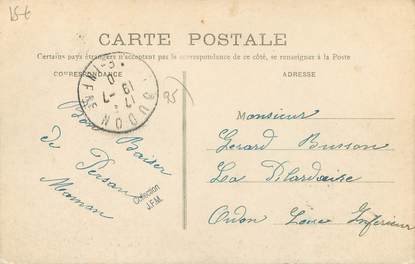 15€
CARTE POSTALE
Certains pays étrangers n'acceptant pas la correspondance de ce côté, se renseigner à la Poste
CORRESPONDANCE
ADRESSE
OUDON
17-7
19
95
Bon Baiser
de Persan
Maman
Collection
J.F.M.
Monsieur
Gerard Busson
La Pilardaise
Oudon Loire Inferieur